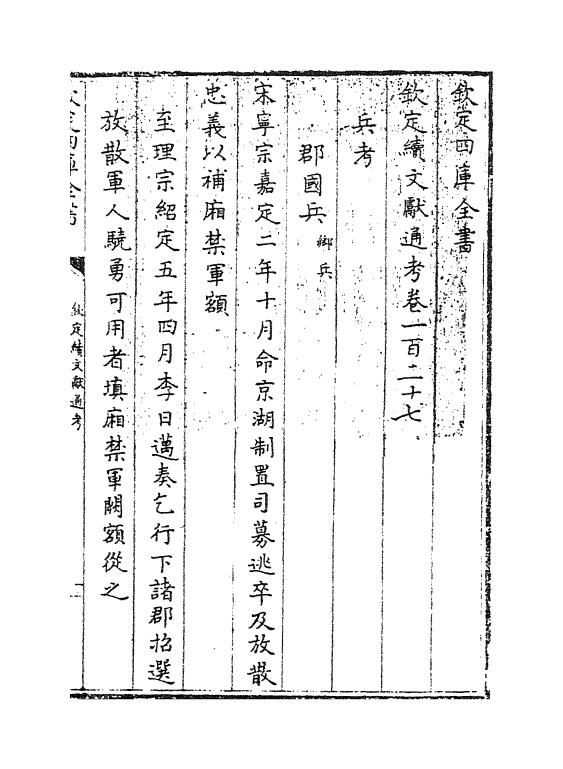 欽定四庫全書
欽定續文獻通考卷一百二十七
兵考
郡國兵鄉兵
宋寧宗嘉定二年十月命京湖制置司募逃卒及放散
忠義以補廂禁軍額
至理宗紹定五年四月李日邁奏乞行下諸郡招選
放散軍人驍勇可用者填廂禁軍闕額從之
欽定四庫全書
欽定續文獻通考